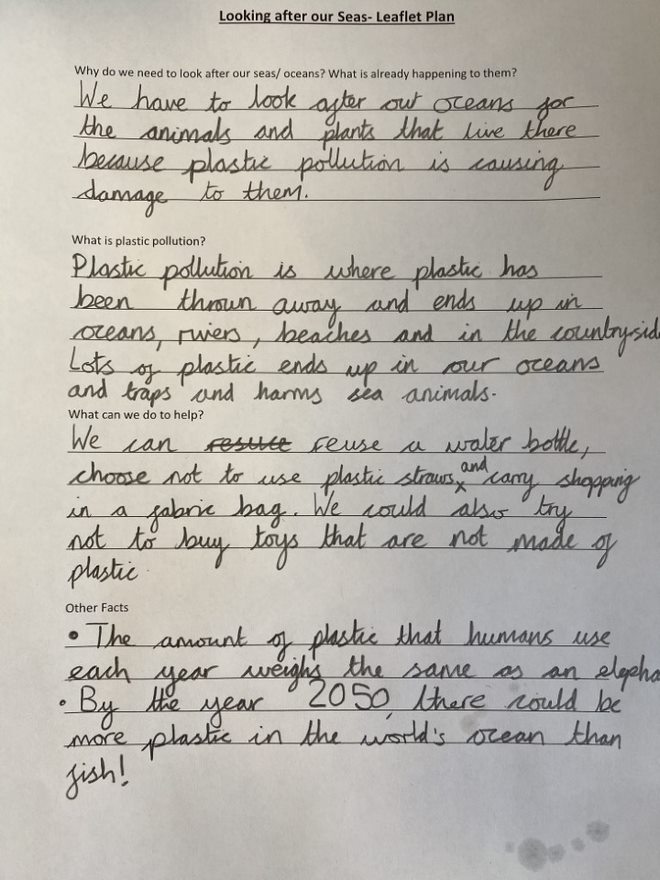 Looking after our Seas- Leaflet Plan
Why do we need to look after our seas/ oceans? What is already happening to them?
We have to look after our oceans for
the animals and plants that live there
because plastic pollution is causing
damage to them.
What is plastic pollution?
Plastic pollution is where plastic has
been thrown away and ends up in
oceans, rivers, beaches and in the countrysid
Lots of plastic ends up in our oceans
and traps and harms sea animals.
What can we do to help?
We can reuse a water bottle,
choose not to use plastic straws and carry shopping
in a fabric bag. We could also try
not to buy toys that are not made of
plastic
Other Facts
• The amount of plastic that humans use
each year weighs the same as an elepha
• By the year 2050, there could be
more plastic in the world's ocean than
fish!